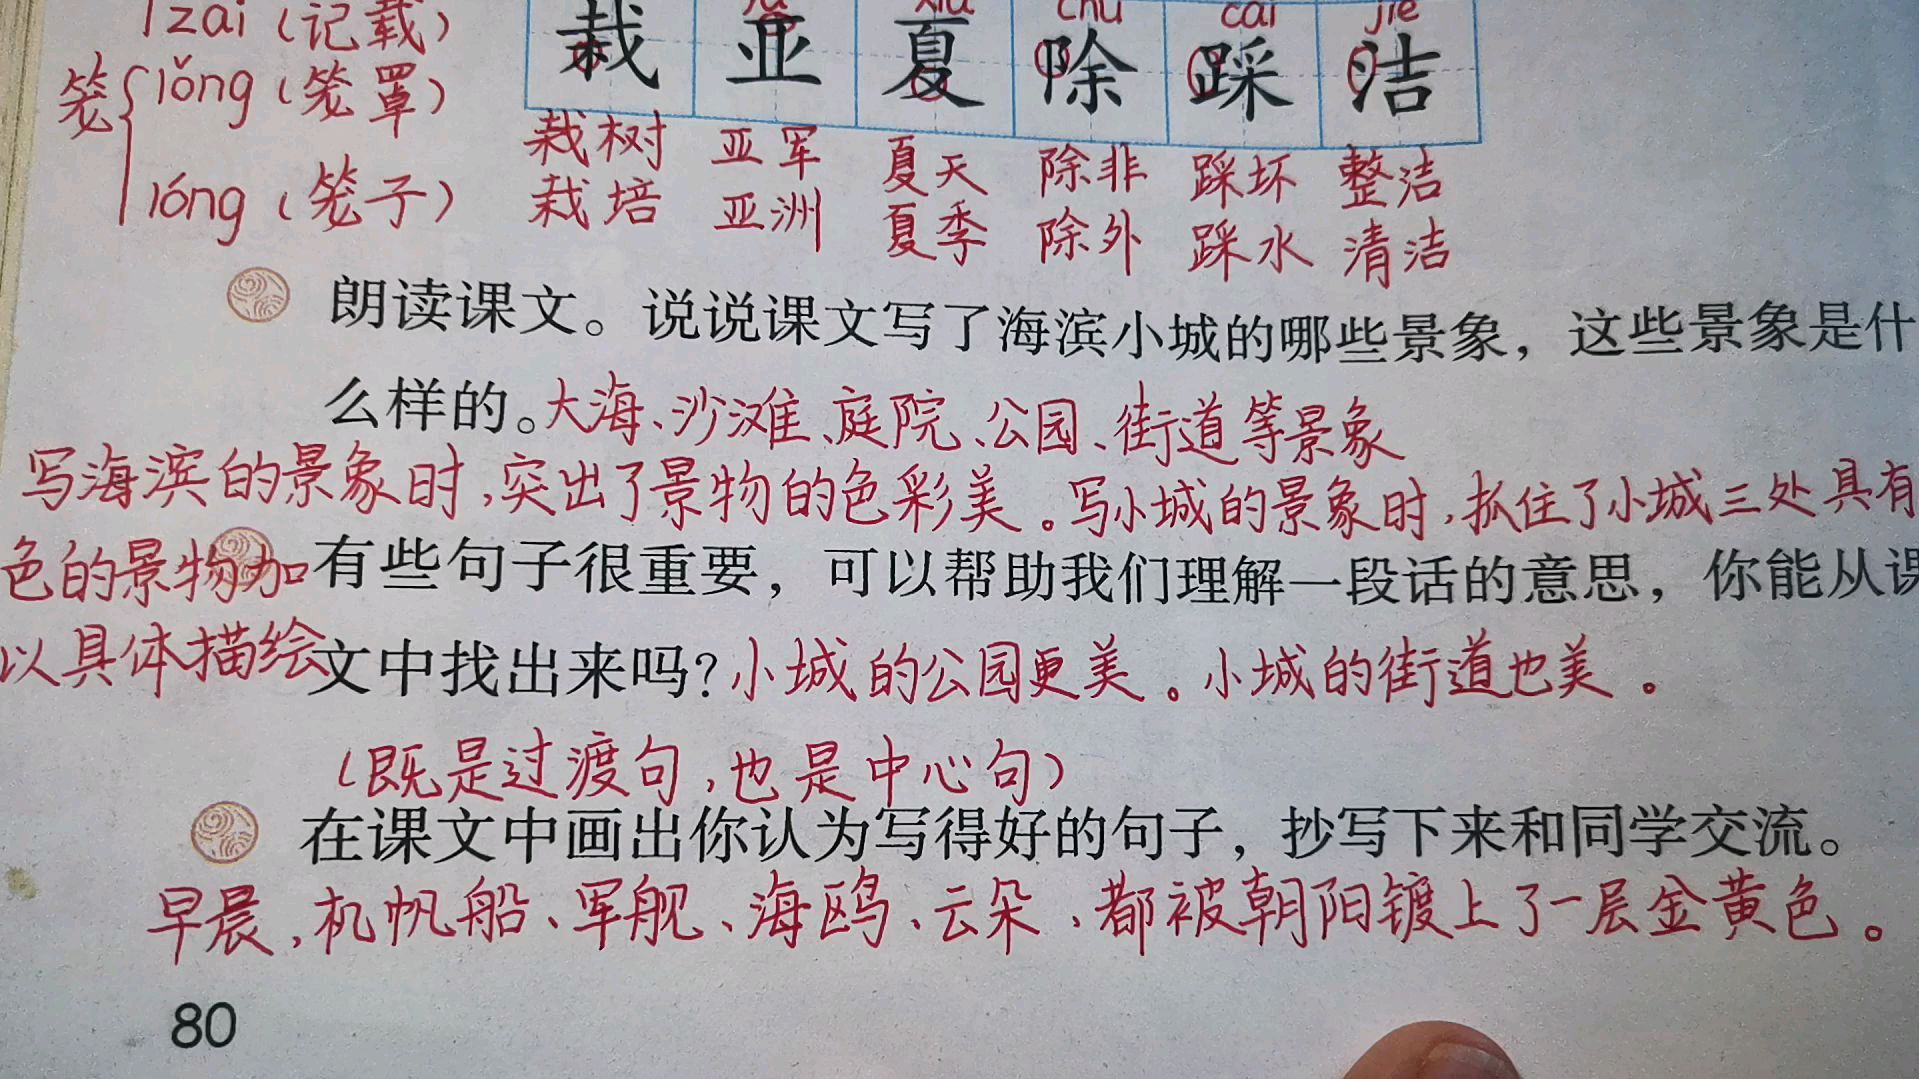 zǎi（记载）
笼 lǒng（笼罩）
lóng（笼子）
xià chú cǎi jié
栽 亚 夏 除 踩 洁
栽树 亚军 夏天 除非 踩坏 整洁
栽培 亚洲 夏季 除外 踩水 清洁
朗读课文。说说课文写了海滨小城的哪些景象，这些景象是什
么样的。大海、沙滩、庭院、公园、街道等景象
写海滨的景象时，突出了景物的色彩美。写小城的景象时，抓住了小城三处具有
色的景物加 有些句子很重要，可以帮助我们理解一段话的意思，你能从课
以具体描绘 文中找出来吗？小城的公园更美。小城的街道也美。
（既是过渡句，也是中心句）
在课文中画出你认为写得好的句子，抄写下来和同学交流。
早晨，机帆船、军舰、海鸥、云朵，都被朝阳镀上了一层金黄色。
80